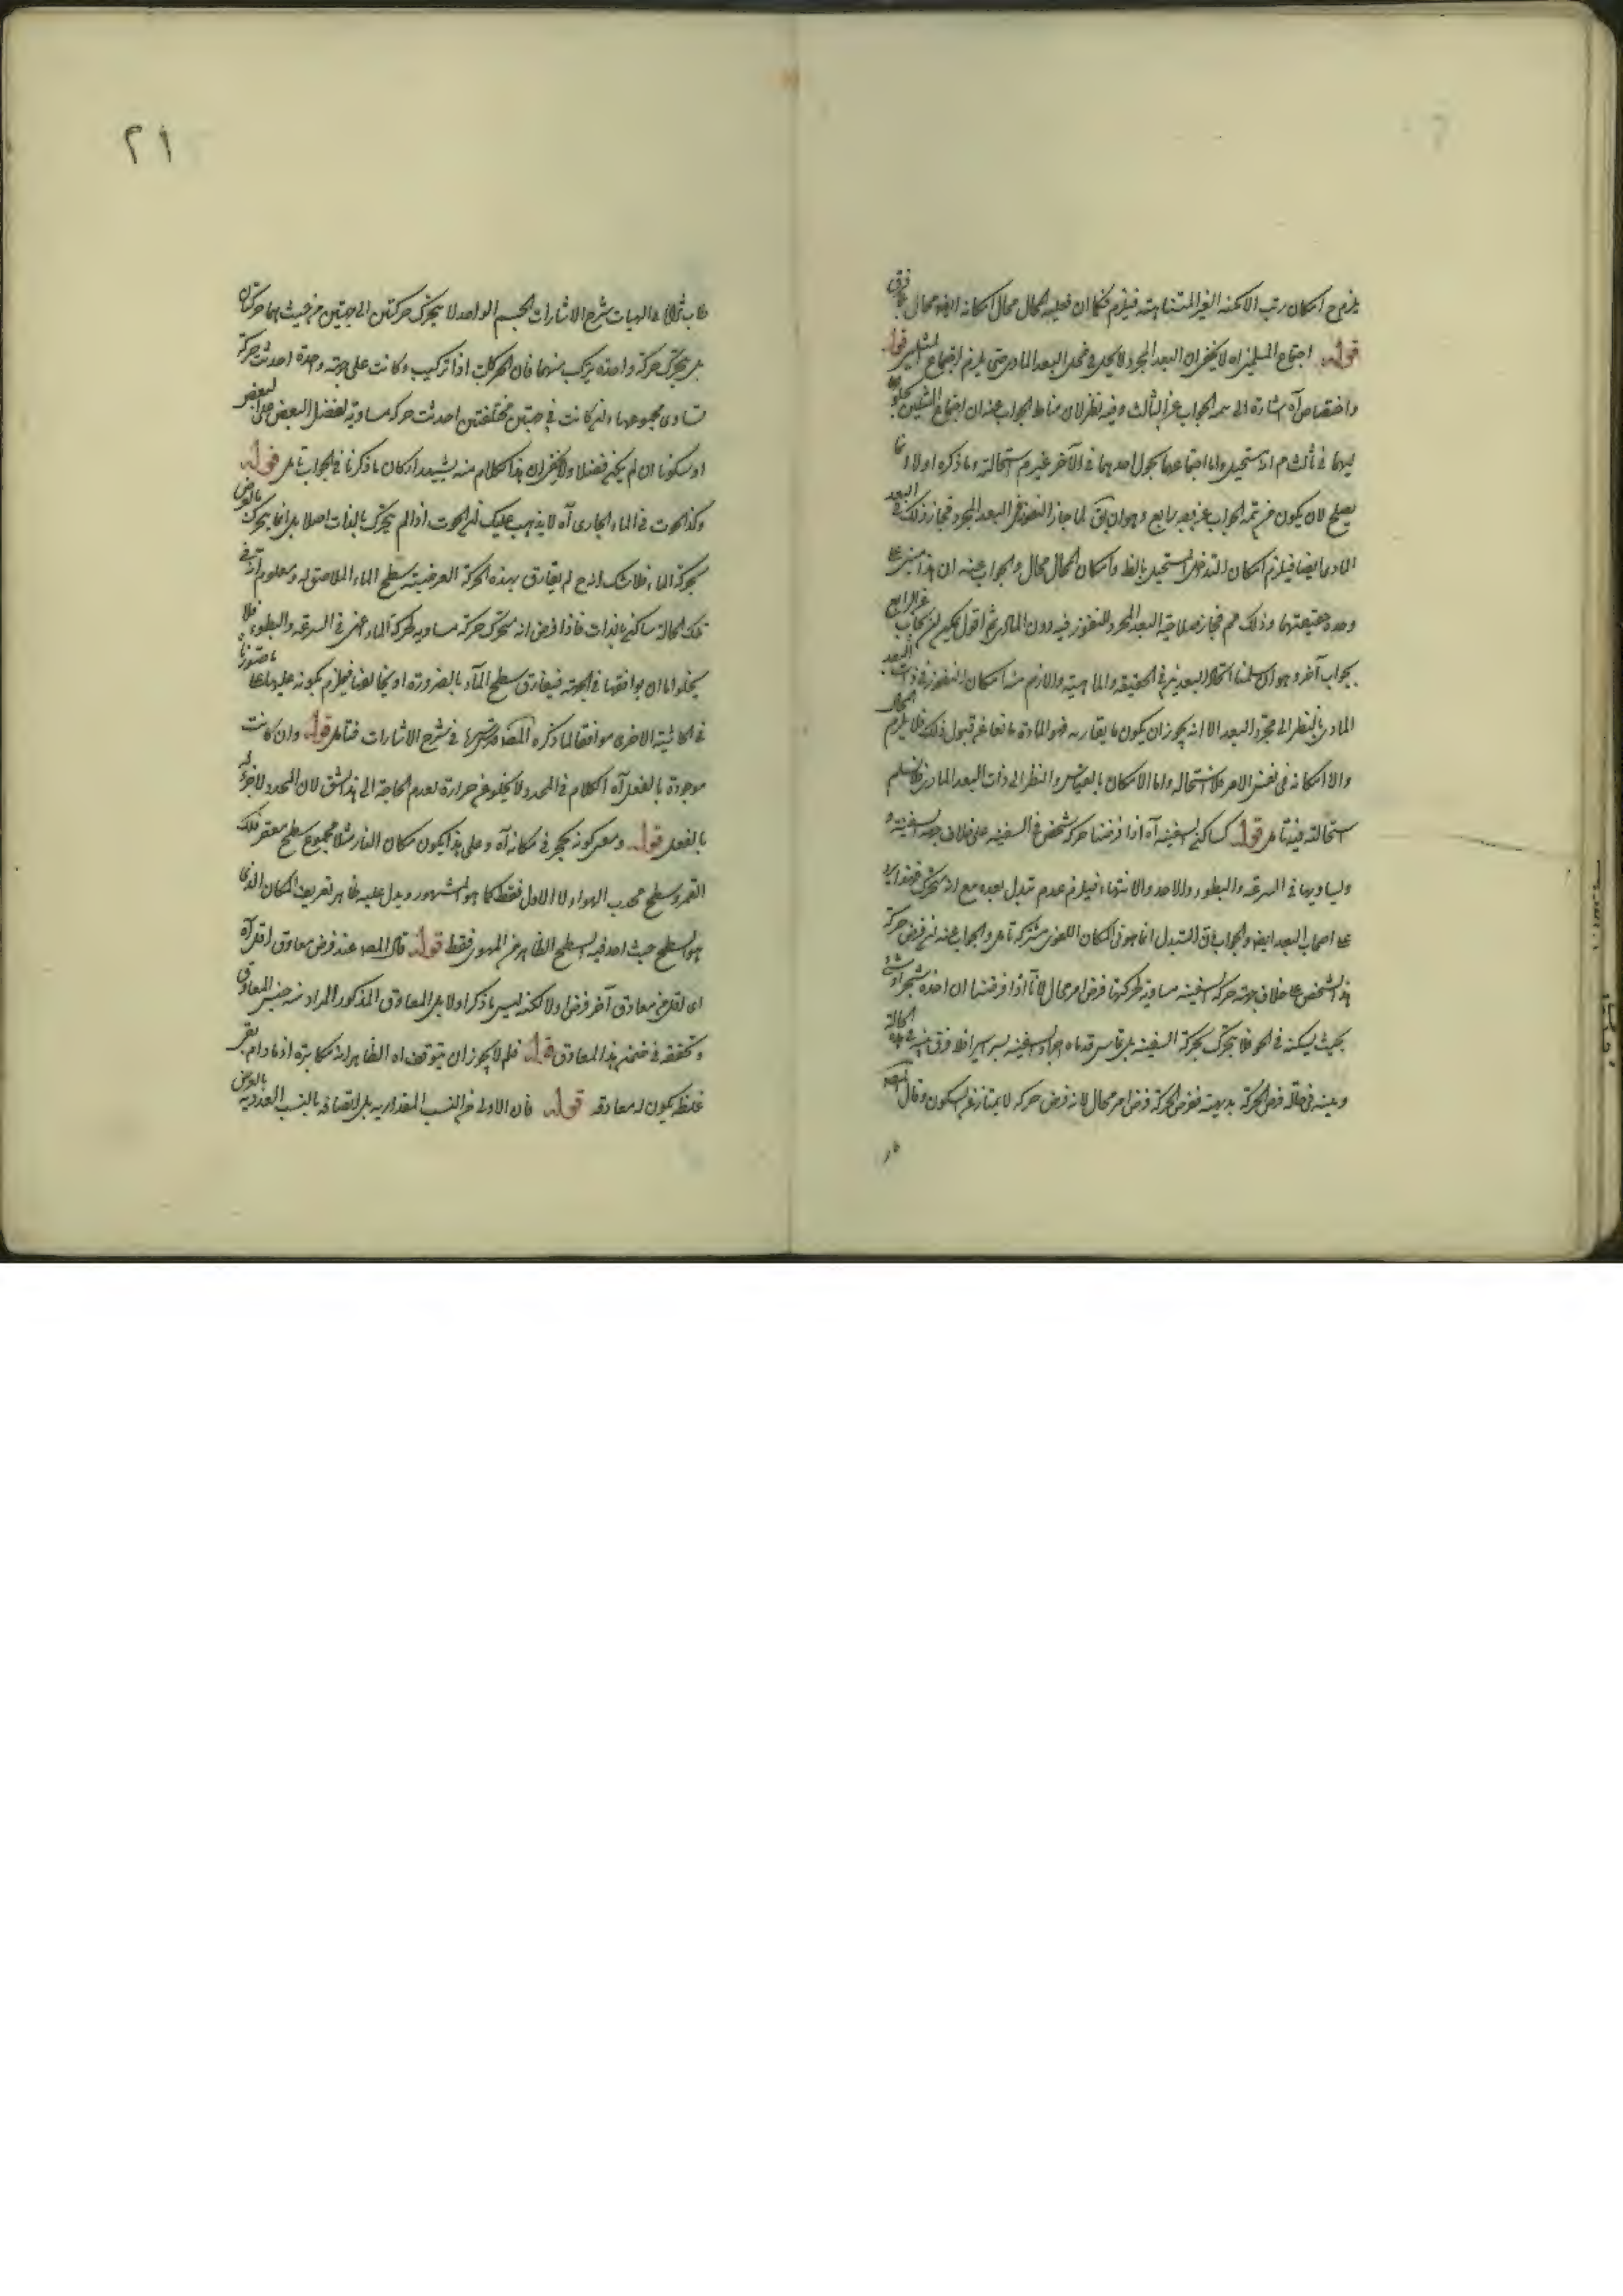 يلزم ح امكان رتب الامكنة الغير المتناهية فيلزم فكما ان فعلية المحال محال امكانه ايضا محال
قوله اجتماع المثلين اه لا يخفى ان البعد المجرد لا يحل في محل البعد المادي حتى يلزم اجتماع المثلين قوله
واختصاص آه اشارة الى تتمة الجواب عن الثالث وفيه نظر لان مناط الجواب عنه ان اجتماع المثلين
في ثالث م انه مستحيل واما اجتماعهما بحلول احدهما في الآخر غير م استحالته وما ذكره اولا
يصلح لان يكون من تتمة الجواب عن رابع وهو ان يق لما جاز النفوذ في البعد المجرد فجاز ذلك في البعد
المادي ايضا فيلزم امكان التداخل المستحيل بالظ وامكان المحال محال والجواب عنه ان هذا مبني على
وحدة حقيقتهما وذلك مم فجاز صلاحية البعد المجرد للنفوذ فيه دون المادي ثم اقول يمكن ان يجاب عن الرابع
بجواب آخر وهو ان سلمنا اتحاد البعدين في الحقيقة والماهية واللازم منه امكان النفوذ في ذات البعد
المادي بالنظر الى مجرد البعد الا انه يجوز ان يكون ما يقارنه وهو المادة مانعا عن قبول ذلك فلا يلزم المحال
والا امكانه في نفس الامر فلا استحالة واما الامكان بالقياس والنظر الى ذات البعد المادي فلا نسلم
استحالته فيه تامل قوله كساكن السفينة آه اذا فرضنا حركة شخص في السفينة على خلاف جهة السفينة
ويساويها في السرعة والبطوء والاخذ والانتهاء فيلزم عدم تبدل بعده مع انه متحرك
على اصحاب البعد ايضا والجواب بان التبدل انما هو في المكان اللغوي مشترك تامل والجواب عنه ان فرض حركة
هذا الشخص على خلاف جهة حركة السفينة مساوية لحركتها فرض امر محال لانا اذا فرضنا ان اخذه شجر او شئ
بحيث يسكنه في الجو فلا يتحرك بحركة السفينة بل تماس قدماه اجزاء السفينة يسيرا يسيرا فلا فرق الحالة
وبينه في حالة فرض الحركة بديهية ففرض الحركة فرض امر محال لانه فرض حركة لا يمتاز عن السكون وقال المص
في
٢١
الهيات شرح الاشارات الجسم الواحد لا يتحرك حركتين الى جهتين من حيث هما حركتان
بل يتحرك حركة واحدة يتركب منهما فان الحركات اذا تركبت وكانت على جهة واحدة احدثت حركة
تساوي مجموعها وان كانت في جهتين مختلفتين احدثت حركة مساوية لفضل البعض على البعض
او سكونا ان لم يكن فضلا ولا يخفى ان هذا الكلام منه يشيد اركان ما ذكرنا في الجواب تامل قوله
وكذا الحوت في الماء الجاري آه لا يذهب عليك ان الحوت اذا لم يتحرك بالذات اصلا بل انما يتحرك بالعرض
بحركة الماء فلا شك انه ح لم يفارق بهذه الحركة العرضية سطح الماء الملاصق له ومعلوم انه في
تلك الحالة ساكن بالذات فاذا فرض انه متحرك حركة مساوية لحركة الماء في السرعة والبطوء فلا
يخلو اما ان يوافقها في الجهة فيفارق سطح الماء بالضرورة او يخالفها فيلزم سكونه عليها على ما صورنا
في الحاشية الاخرى موافقا لما ذكره المص في شرح الاشارات فتامل قوله وان كانت
موجودة بالفعل آه الكلام في المحدد لا يخلو عن حرازة لعدم الحاجة الى هذا الشق لان المحدد لا جزء له
بالفعل قوله ومعنى كون الحجر في مكانه آه وعلى هذا يكون مكان النار مثلا مجموع سطح مقعر فلك
القمر وسطح محدب الهواء لا الاول فقط كما هو المشهور ويدل عليه ظاهر تعريف المكان الذي
هو السطح حيث اخذ فيه السطح الظاهر من المحوى فقط قوله قال المص عند فرض معاوق اقل آه
اى اقل من معاوق آخر فرض اولا لكنه ليس ما ذكر اولا بل المعاوق المذكور المراد منه جنس المعاوق
وتحققه في ضمن هذا المعاوق قوله فلم لا يجوز ان يتوقف اه الظاهر انه مكابرة اذ ما دام
غلظ يكون له معاوقة قوله فان الاولى من النسب المقدارية بل لاتصافه بالنسب العددية بالعرض